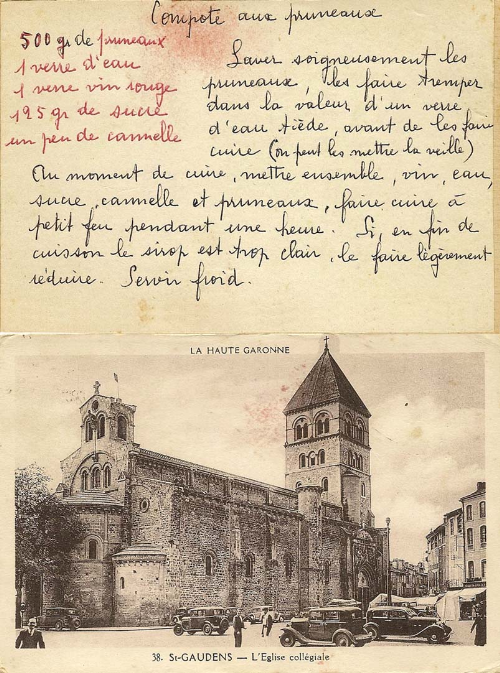 Compote aux pruneaux
500 gr de pruneaux
1 verre d'eau
1 verre vin rouge
125 gr de sucre
un peu de cannelle
Laver soigneusement les
pruneaux, les faire tremper
dans la valeur d'un verre
d'eau tiède, avant de les faire
cuire (on peut les mettre la veille)
Au moment de cuire, mettre ensemble, vin, eau,
sucre, cannelle et pruneaux, faire cuire à
petit feu pendant une heure. Si, en fin de
cuisson le sirop est trop clair, le faire légèrement
réduire. Servir froid.
LA HAUTE GARONNE
38- St-GAUDENS — L'Eglise collégiale